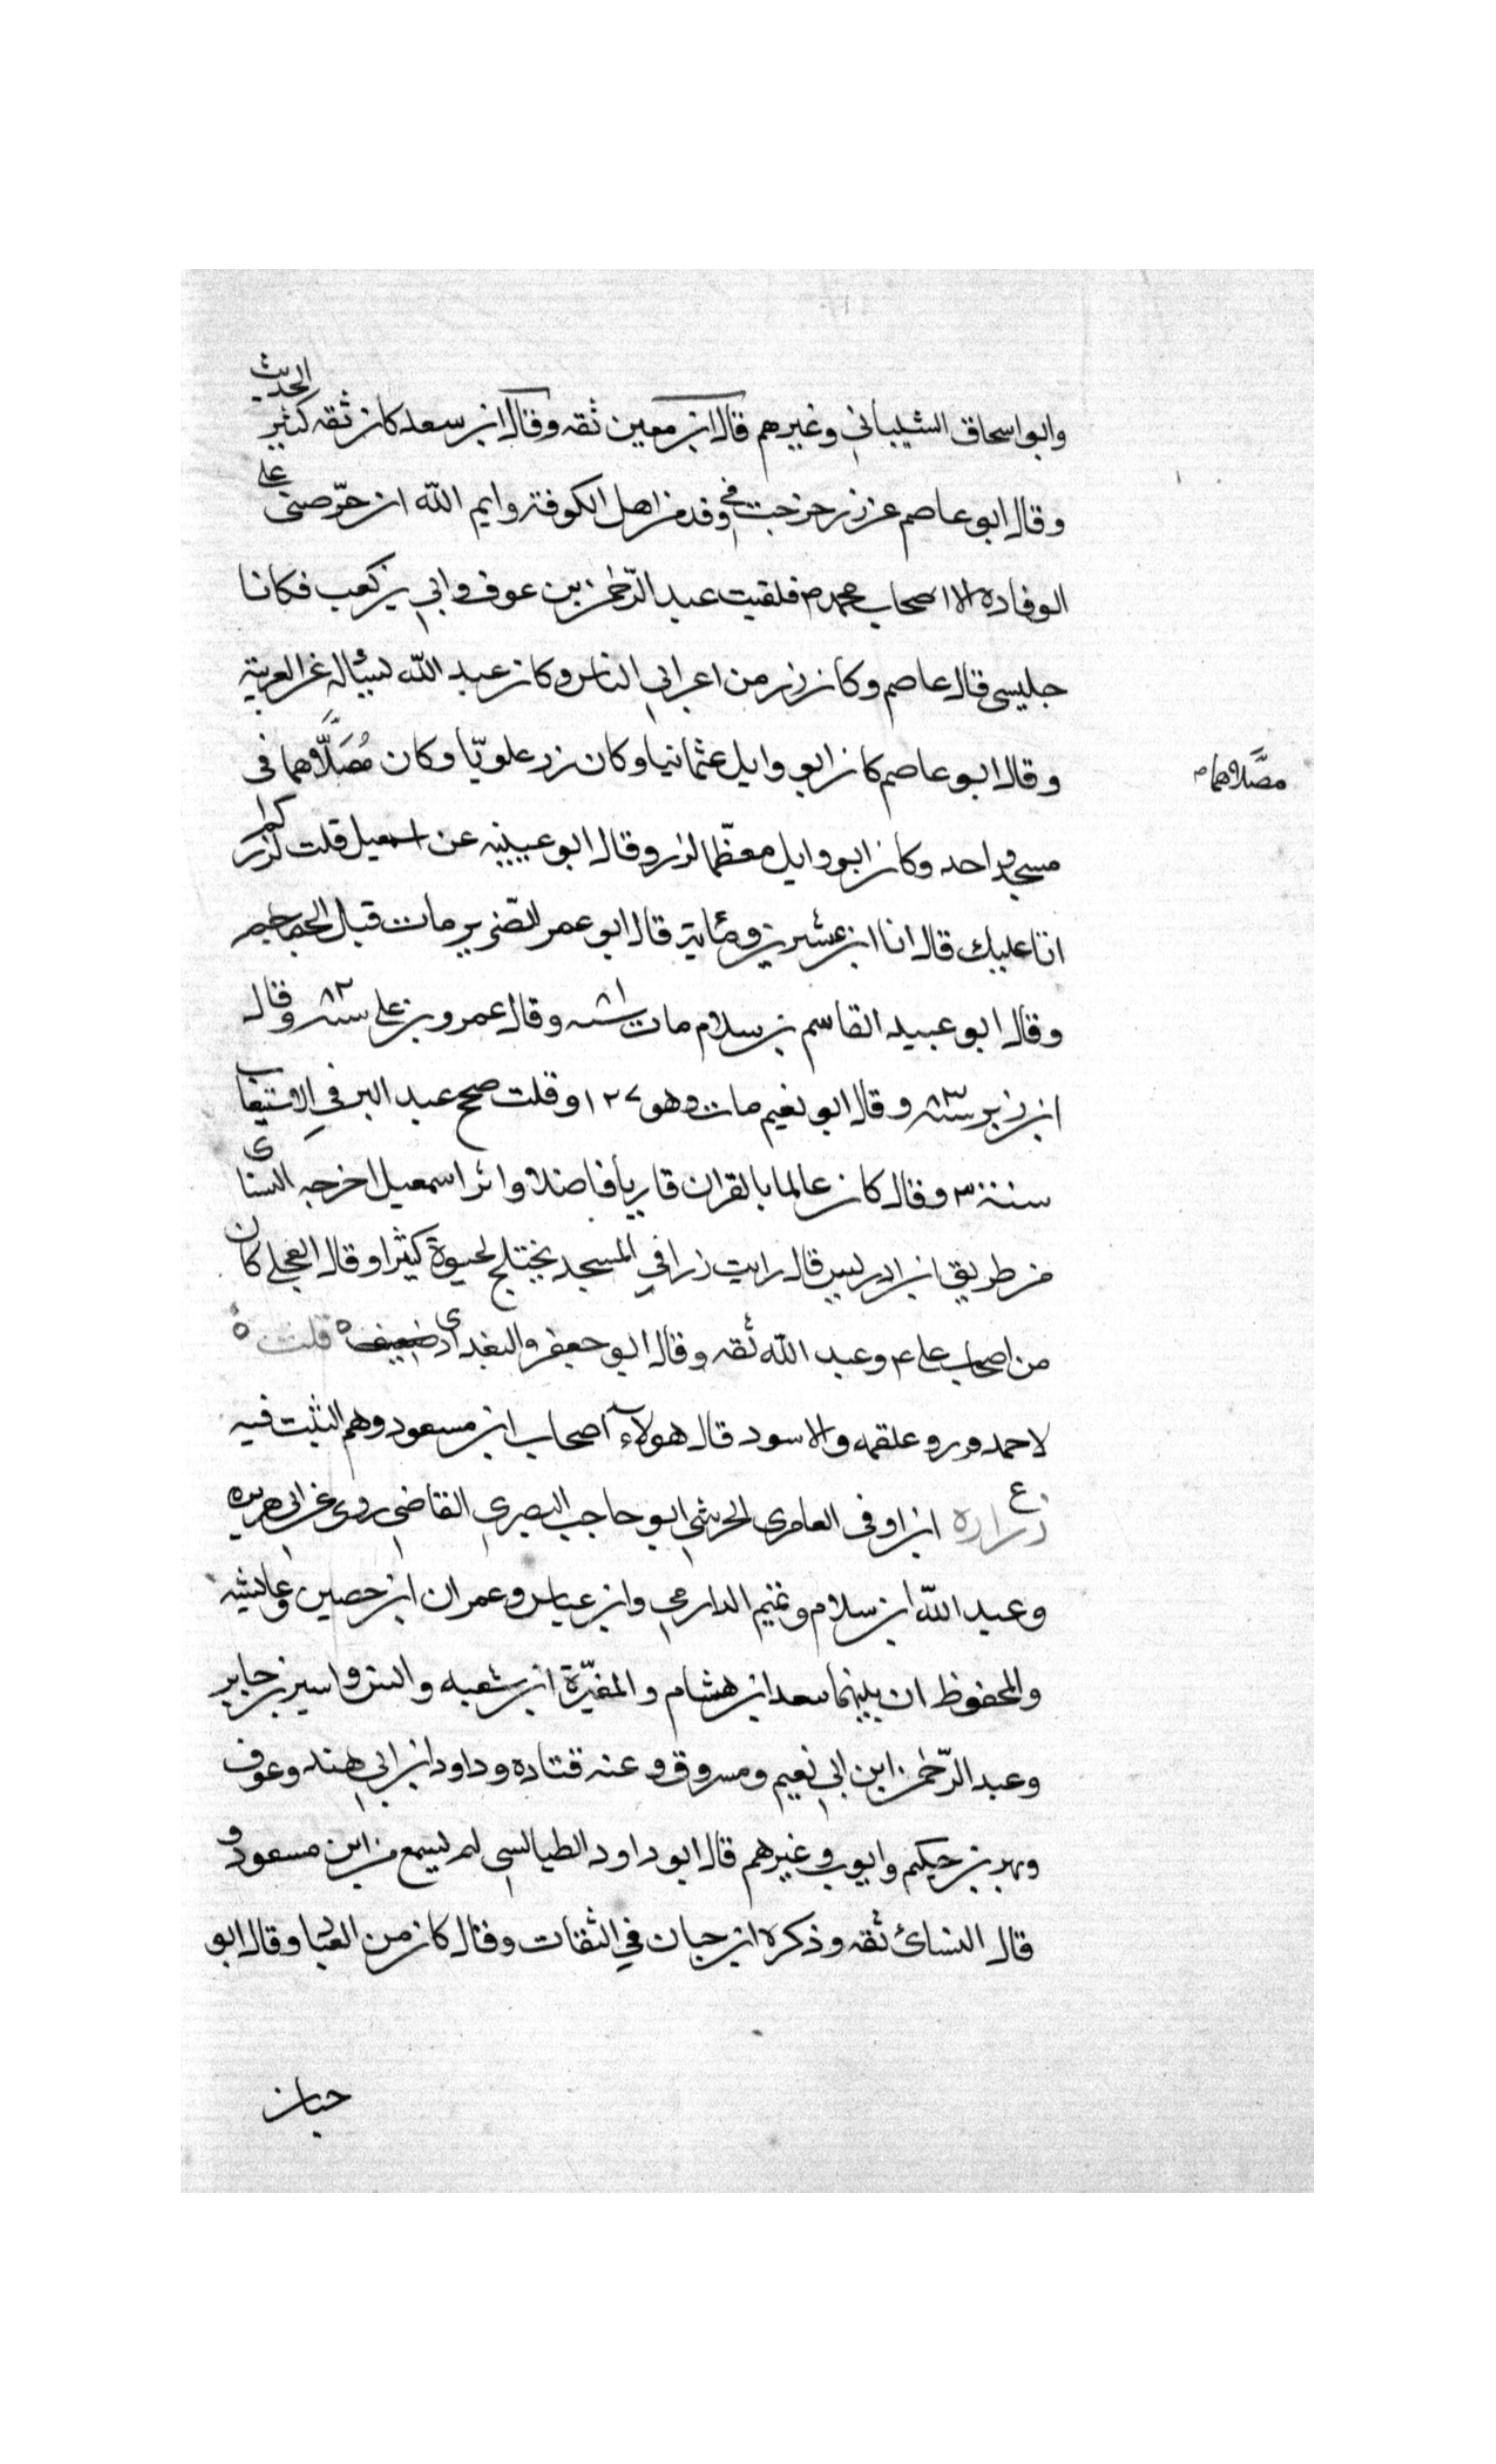 وابو اسحاق الشيباني وغيرهم قال ابن معين ثقه وقال ابن سعد كان ثقه كثير الحديث
وقال ابو عاصم عن زر خرجت في وفد من اهل الكوفة وايم الله ان حرّضنى على
الوفاده الا اصحاب محمد ص فلقيت عبد الرّحمن بن عوف وابي بن كعب فكانا
جليسى قال عاصم وكان زر من اعرابي الناس وكان عبد الله يسئاله عن العربية
وقال ابو عاصم كان ابو وايل عثمانيا وكان زر علويّا وكان مُصَلَّاهما فى
مصَّلاهما م
مسجد واحد وكان ابو وايل معظّما لزر وقال ابو عيينه عن اسمعيل قلت لزر كم
اتا عليك قال انا ابن عشرين ومائة قال ابو عمر الضرير مات قبل الجماجم
وقال ابو عبيد القاسم بن سلام مات سنه ٨١ وقال عمرو بن على سنه ٨٢ وقال
ابن زبر سنه ٨٣ وقال ابو نعيم مات وهو ١٢٧ وقلت صحح عبد البر في الاستيعاب
سنة ٣ وقال كان عالما بالقران قاريأ فاضلا واثر اسمعيل اخرجه النسائى
من طريق ابن ادريس قال رايت زرا في المسجد يختلج لحيوة كثيرا وقال العجلى كان
من اصحاب على ع وعبد الله ثقه وقال ابو جعفر والبغدادى ه قلت ه
لاحمد وزر وعلقمه والاسود قال هولاء اصحاب ابن مسعود وهم الثبت فيه
ع زراره ابن اوفى العامرى الحرشي ابو حاجب البصري القاضي روى عن ابي هريره
وعبد الله ابن سلام وتميم الدارمي وابن عباس وعمران ابن حصين وعايشه
والمحفوظ ان بينهما سعد ابن هشام والمغيّرة ابن شعبه وانس واسير بن جابر
وعبد الرّحمن ابن ابي نعيم ومسروق وعنه قتاده وداود ابن ابي هند وعوف
وبهز بن حكيم وايوب وغيرهم قال ابو داود الطيالسي لم يسمع من ابن مسعود و
قال النسائ ثقه وذكره ابن حبان في الثقات وقال كان من العبّاد وقال ابو
حبان